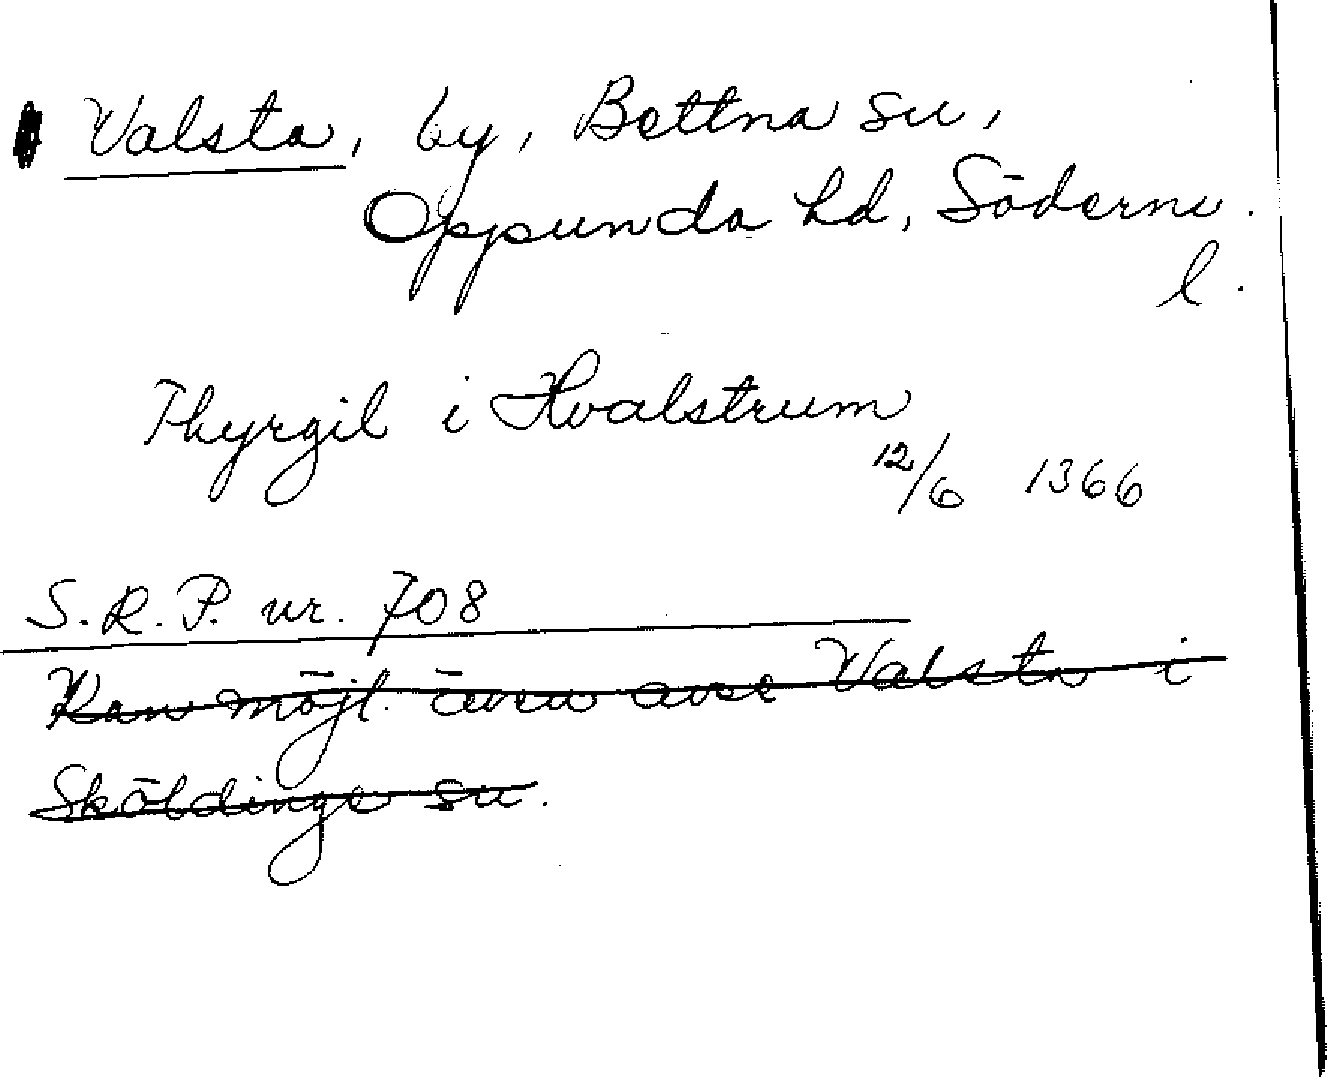 Valsta, by, Bettna sn,
Oppunda hd, Söderm.
l.
Thyrgil i Hvalstrum
12/6 1366
S.R.P. nr. 708
Kan möjl. även avse Valsta i
Sköldinge sn.